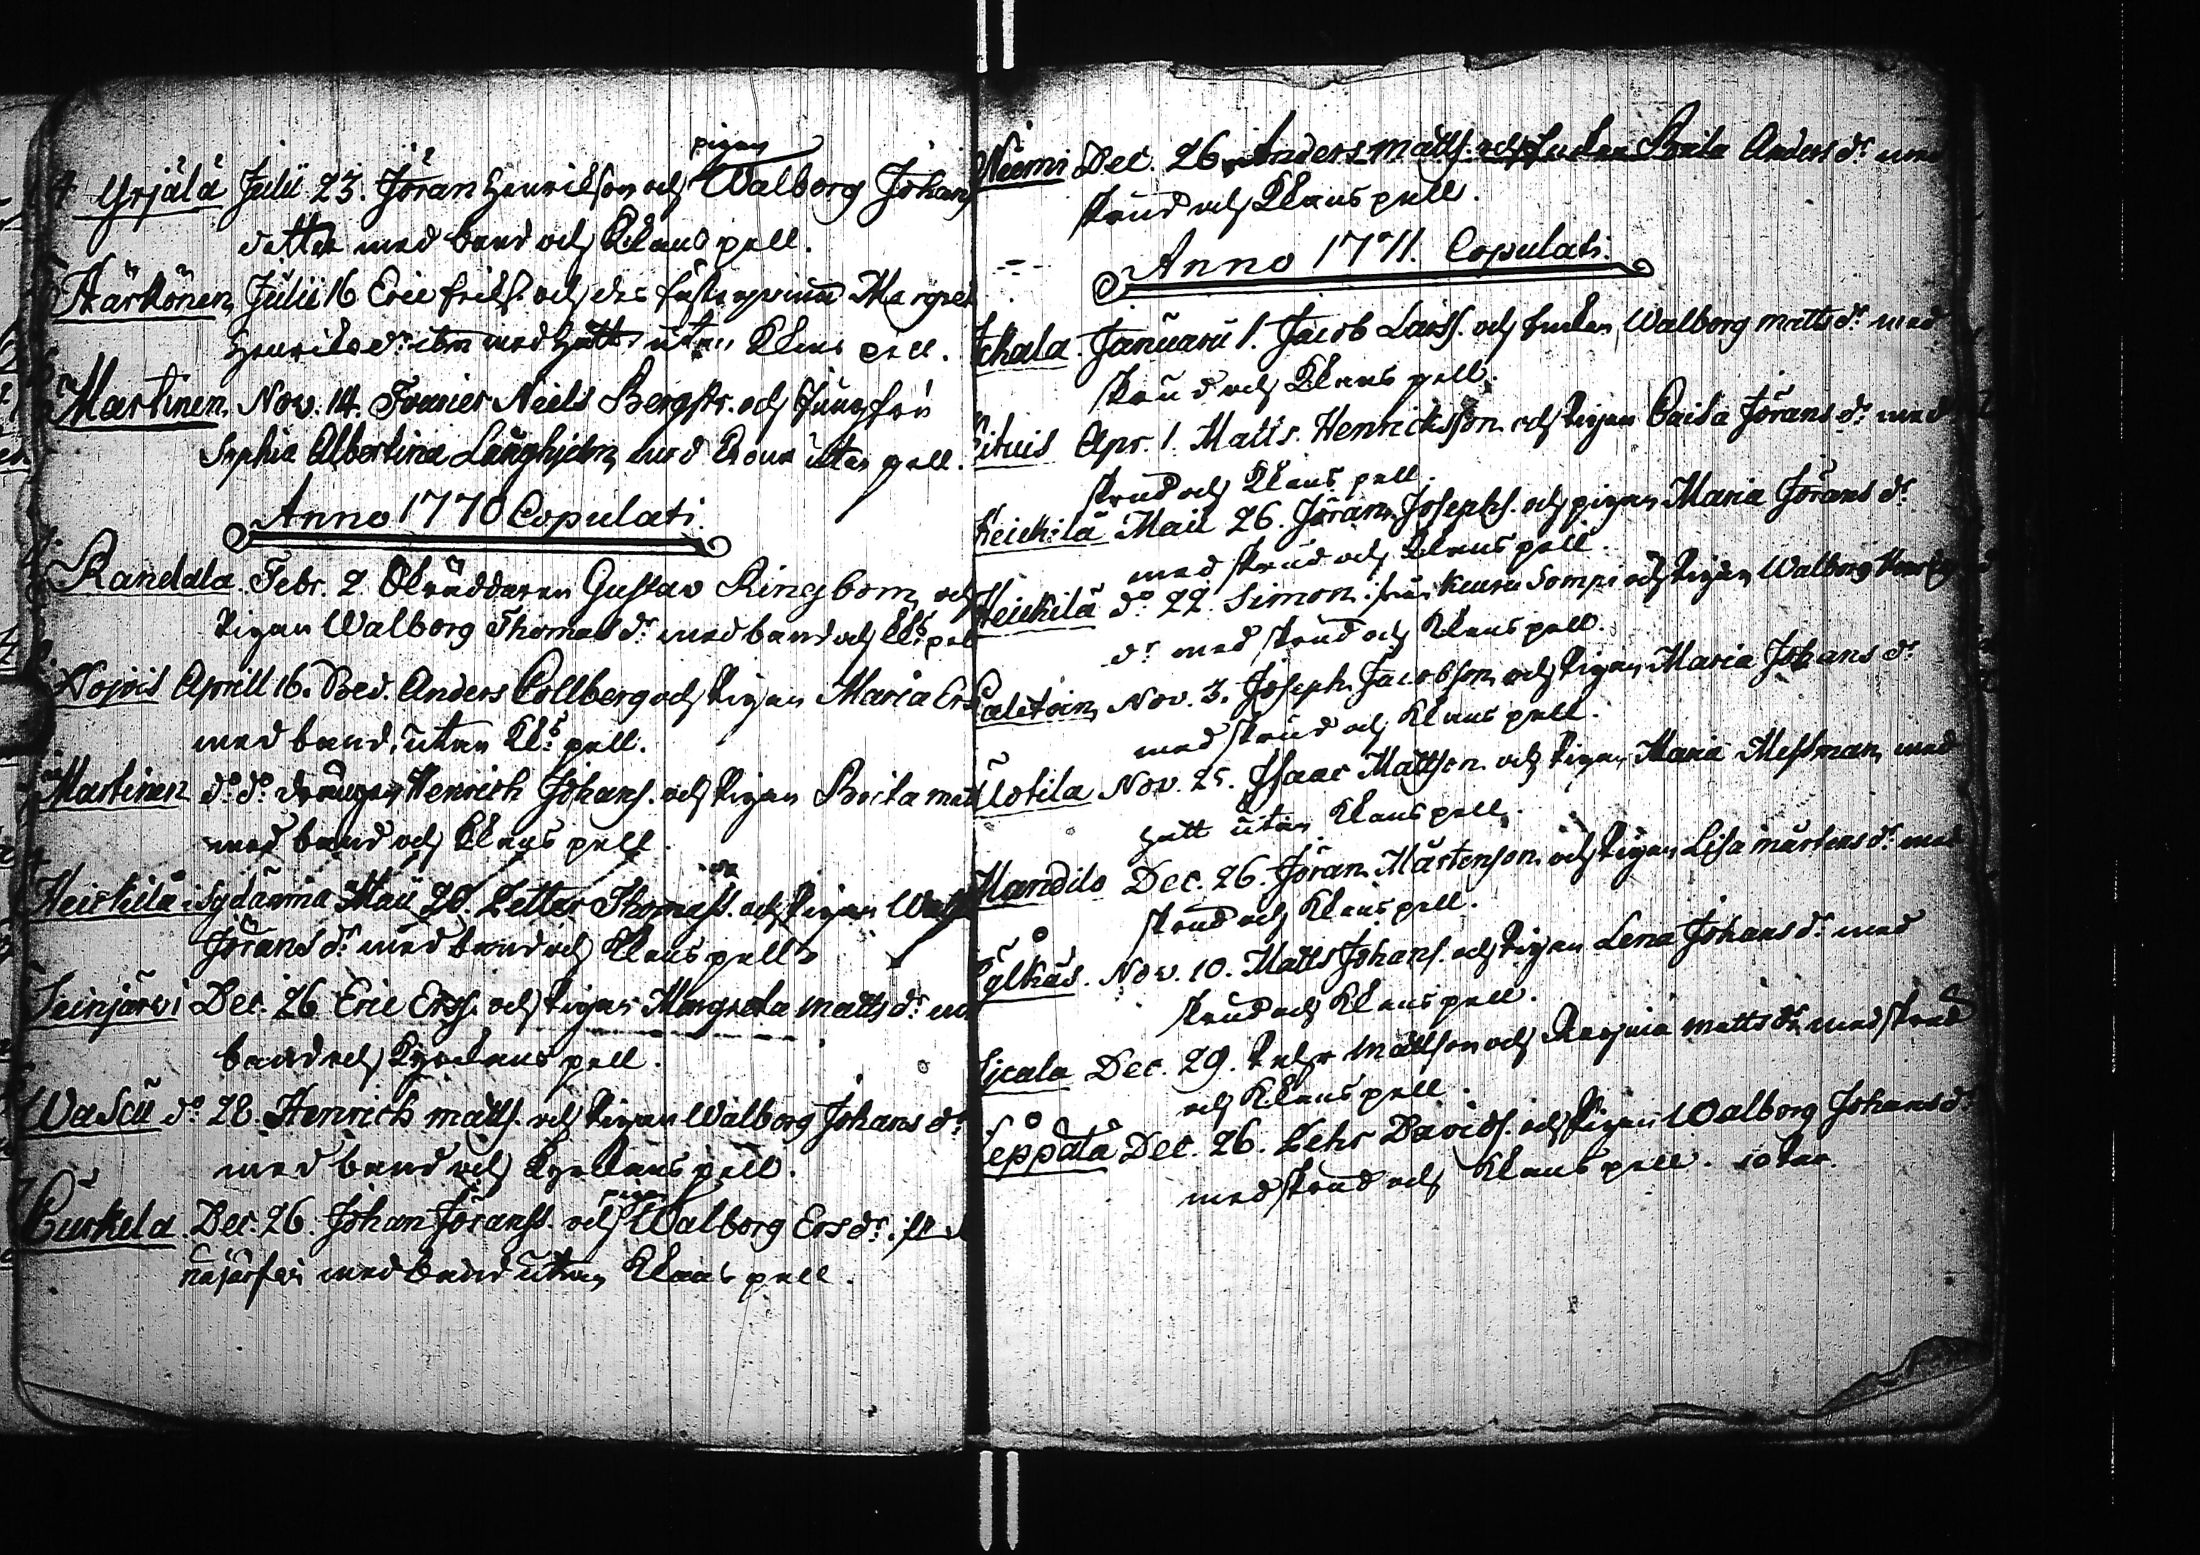 pigan
4. Yrjälä Julii 23. Jöran Henrikson och Walborg Johans
dotter med band och Kkans pell.
Härkönen Julii 16 Eric Erichs. och des fästeqvinna Margret
Henriksdr. ibm med hätt utan Kkans pell.
Martinen Nov. 14. Fourier Niels Bergstr. och Jungfru
Sophia Albertina Laughjelm med Crona utan pell.
Anno 1770 Copulati.
Randala. Febr. 2 Skräddaren Gustav Ringbom och
Pigan Walborg Thomasdr. med band och Kks pell
Nojvis Aprill 16. Anders Collberg och Pigan Maria Ers
med band, utan Kks pell.
Martinen do. do. drängen Henrich Johans. och Pigan Brita matt
med band och Kkans pell.
Heickilä i Sydänma Maii 20. Petter Thomass. och Pigan Walb
Jöransdr. med band och Kkans pell
Seinjärvi Dec. 26 Eric Ers. och Pigan Margreta mattsdr. med
band och Kyrckans pell.
Wascu do. 28. Henrich matts. och Pigan Walborg Johansdr.
med band och Kyrckans pell.
pigan
Curkela. Dec. 26. Johan Jöranss. och Walborg Ersdr.
med band utan Kkans pell.
Niemi Dec. 26 Anders matts. och Enckan Brita Andersdr. med
skrud och Kkans pell.
Anno 1771. Copulati.
Januarii 1. Jacob Larss. och Enckan Walborg mattsdr. med
skrud och Kkans pell.
Apr. 1. Matts Henricksson och Pigan Caisa Jöransdr. med
skrud och Kkans pell.
Heickilä Maii 26. Jöran Josephs. och pigan Maria Jöransdr.
med skrud och Kkans pell.
Heickilä do. 22. Simon från Kauru Sompi och Pigan Walborg
dr. med skrud och Kkans pell.
Nov. 3. Joseph Jacobson och Pigan Maria Johansdr.
med skrud och Kkans pell.
Nov. 25. Isaac Mattson och Pigan Maria Messman med
hätt utan Kkans pell.
Mandilo Dec. 26. Jöran Mårtenson och Pigan Lisa mårtensdr. med
skrud och Kkans pell.
Nov. 10. Matts Johans. och Pigan Lena Johansdr. med
skrud och Kkans pell.
Dec. 29. Mattson och Regina mattsdr. med skrud
och Kkans pell.
Leppälä Dec. 26. Pehr Davids. och Pigan Walborg Johansdr.
med skrud och Kkans pell. 10 Par.